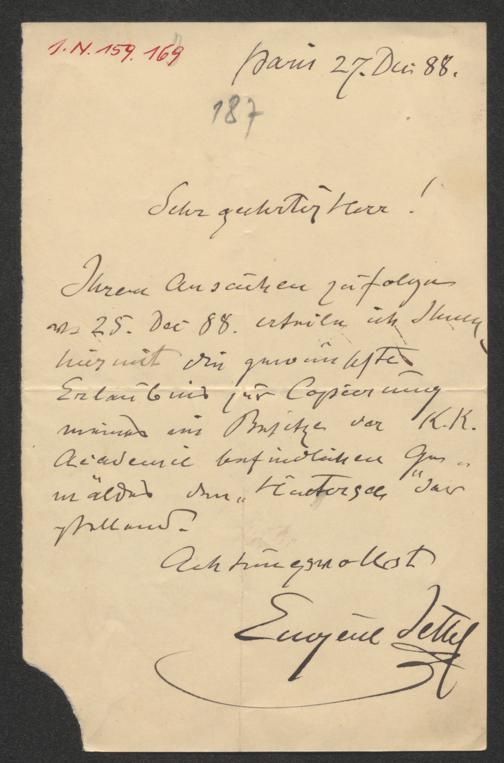 I.N. 159.169
Paris 27. Dec 88.
187
Sehr geehrter Herr!
Ihrem Ansuchen zufolge
vs 25. Dec 88. ertheile ich Ihnen
hiermit die gewünschte
Erlaubnis zur Copierung
meines im Besitze der K.K.
Academie befindlichen Ge„
mäldes den „Hintersee" dar
stellend.
Achtungsvollst
Eugène Jettel